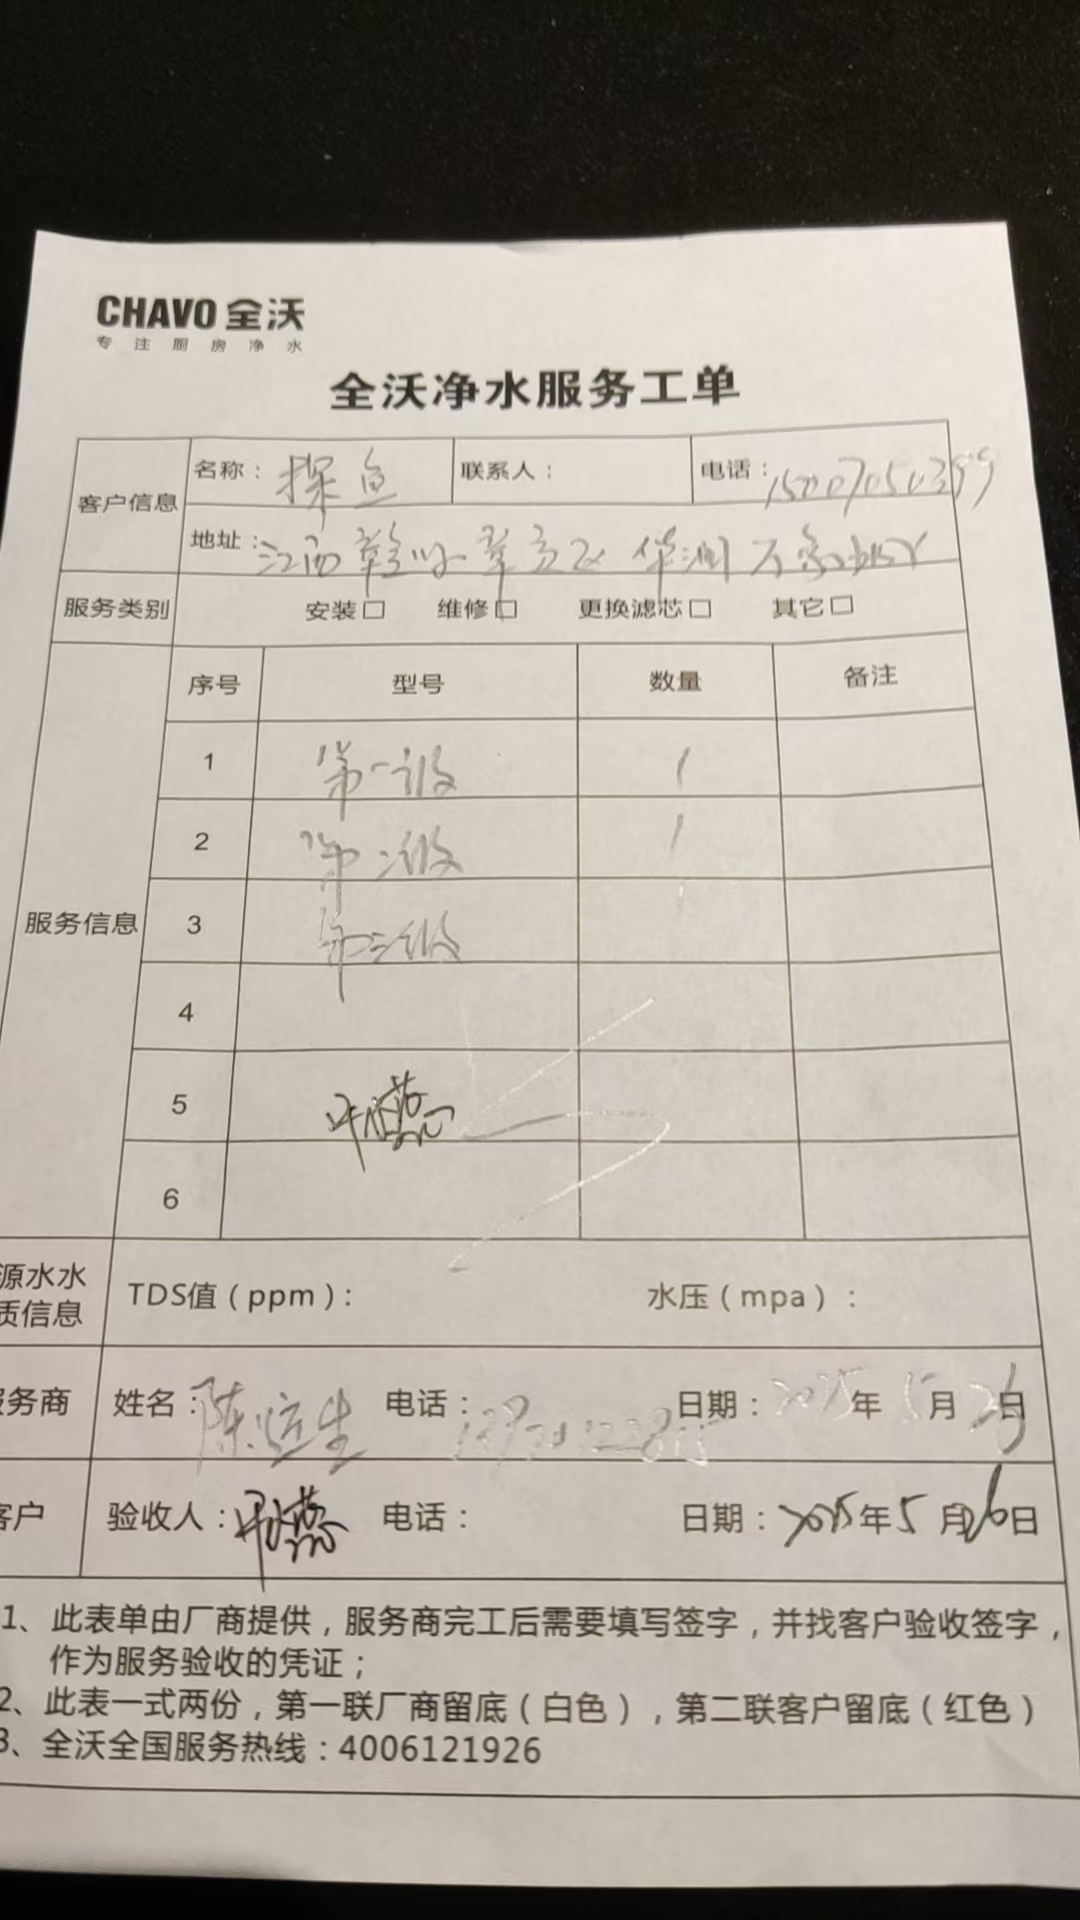 CHAVO 全沃
专注厨房净水
全沃净水服务工单
客户信息
名称：探鱼
联系人：
电话：15007050399
地址：江西 章贡区 华润万象
服务类别
安装□ 维修□ 更换滤芯□ 其它□
服务信息
序号 型号 数量 备注
1 第一级 1
2 第二级 1
3 第三级 1
4
5
6
源水水
质信息
TDS值（ppm）：
水压（mpa）：
务商 姓名：陈 生 电话： 日期：2025年5月26日
客户 验收人： 电话： 日期：2025年5月26日
1、此表单由厂商提供，服务商完工后需要填写签字，并找客户验收签字，
作为服务验收的凭证；
2、此表一式两份，第一联厂商留底（白色），第二联客户留底（红色）
3、全沃全国服务热线：4006121926